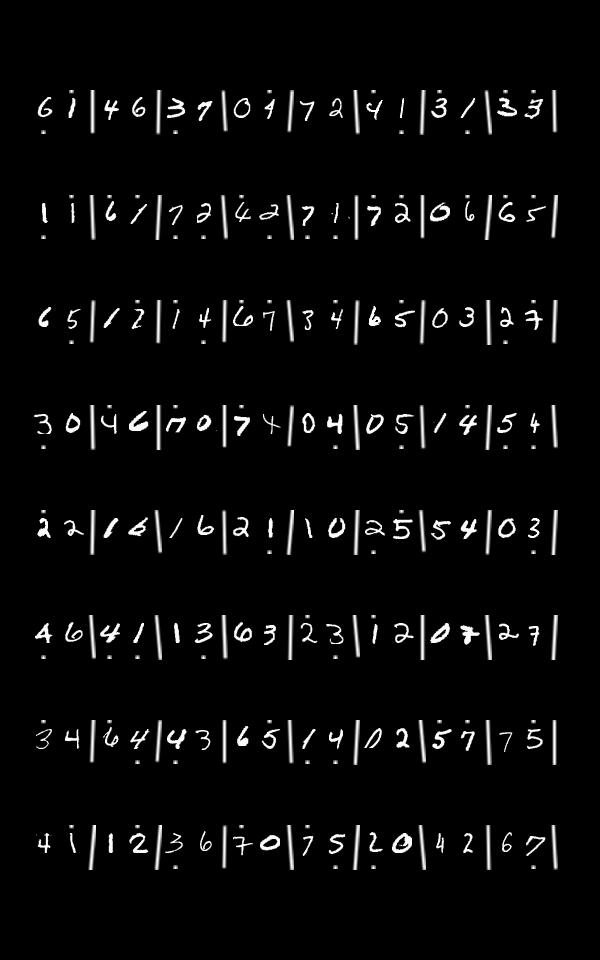 6 1 | 4 6 | 3 7 | 0 4 | 7 2 | 4 1 | 3 1 | 3 3 |
1 1 | 6 1 | 7 2 | 4 2 | 7 1 | 7 2 | 0 6 | 6 5 |
6 5 | 1 2 | 1 4 | 6 7 | 3 4 | 6 5 | 0 3 | 2 7 |
3 0 | 4 6 | 7 0 | 7 4 | 0 4 | 0 5 | 1 4 | 5 4 |
2 2 | 1 6 | 1 6 | 2 1 | 1 0 | 2 5 | 5 4 | 0 3 |
4 6 | 4 1 | 1 3 | 6 3 | 2 3 | 1 2 | 0 7 | 2 7 |
3 4 | 6 4 | 4 3 | 6 5 | 1 4 | 0 2 | 5 7 | 7 5 |
4 1 | 1 2 | 3 6 | 7 0 | 7 5 | 2 0 | 4 2 | 6 7 |